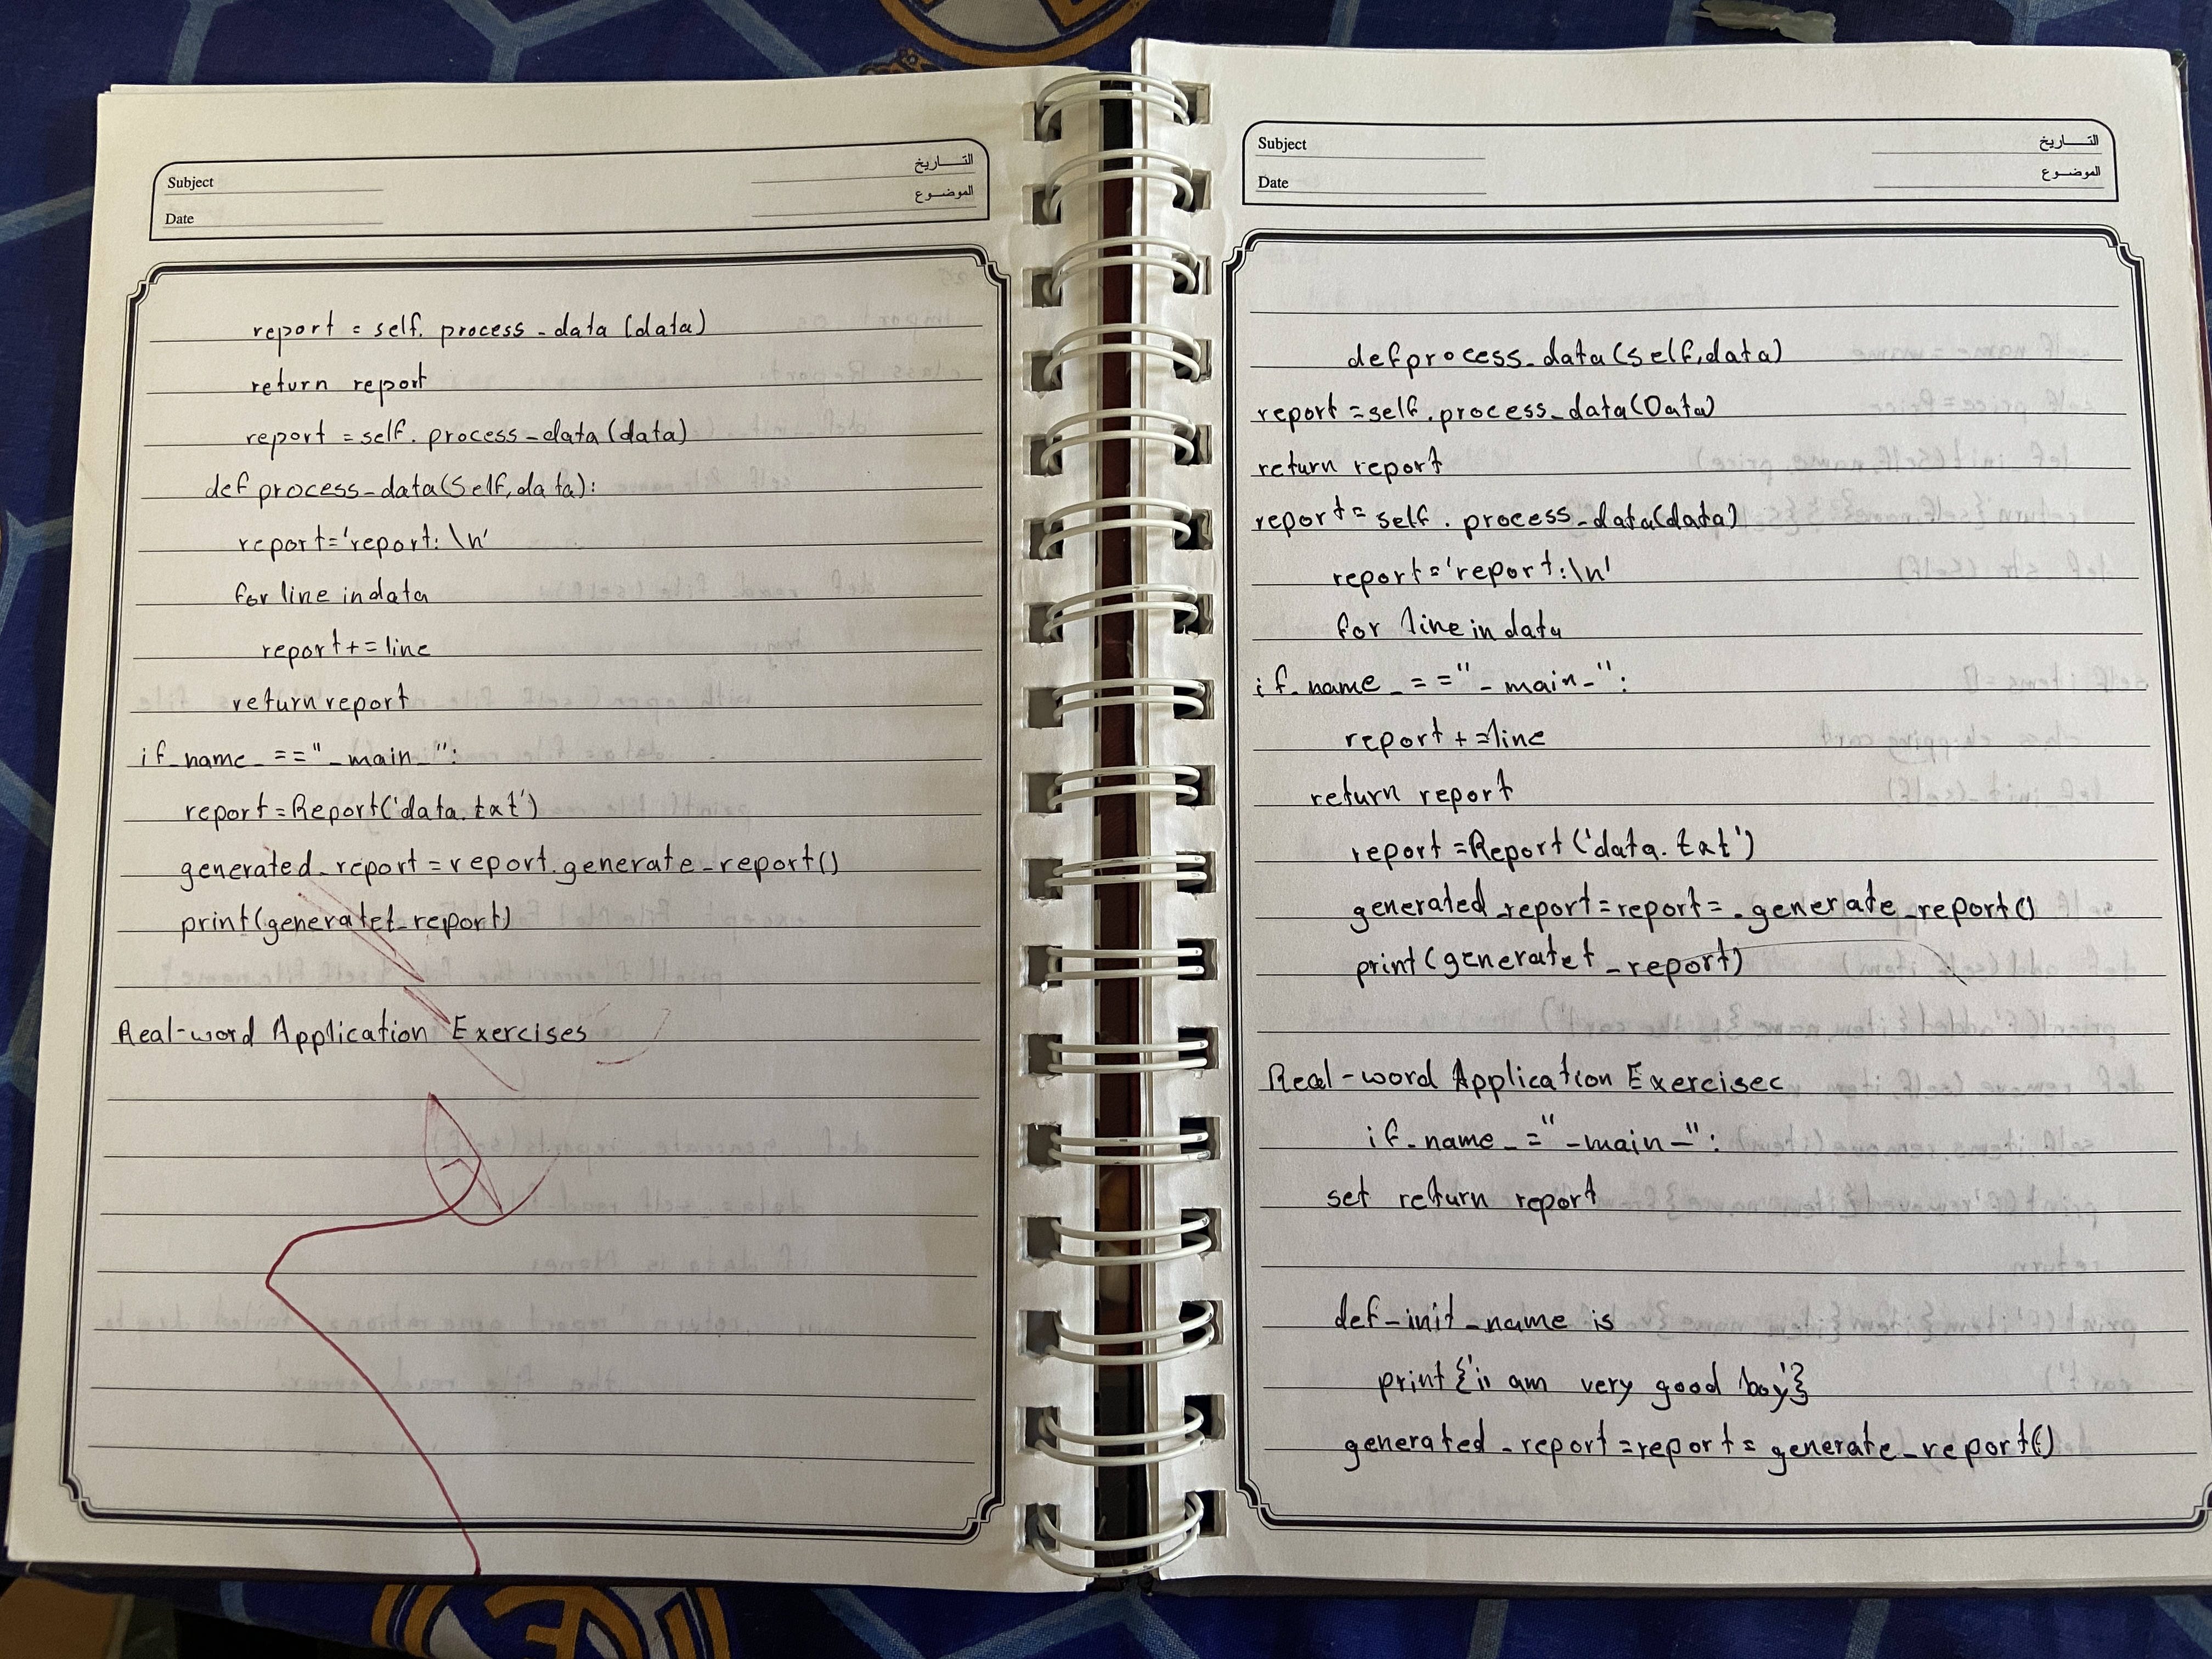 Subject
التــاريخ
Date
الموضـوع
report = self. process-data (data)
return report
report = self. process-data(data)
def process-data(self,data):
report='report:\n'
for line in data
report+=line
return report
if-name- == "-main-":
report=Report('data.tat')
generated-report=report.generate-report()
print(generatet-report)
Real-word Application Exercises
Subject
التــاريخ
Date
الموضـوع
def process-data(self,data)
report=self.process-data(Data)
return report
report=self.process-data(data)
report='report:\n'
for line in data
if-name-=="-main-":
report+=line
return report
report=Report('data.tat')
generated-report=report=.generate-report()
print(generatet-report)
Real-word Application Exercisec
if-name-="-main-":
set return report
def-init-name is
print{'i am very good boy'}
generated-report=report=generate-report()